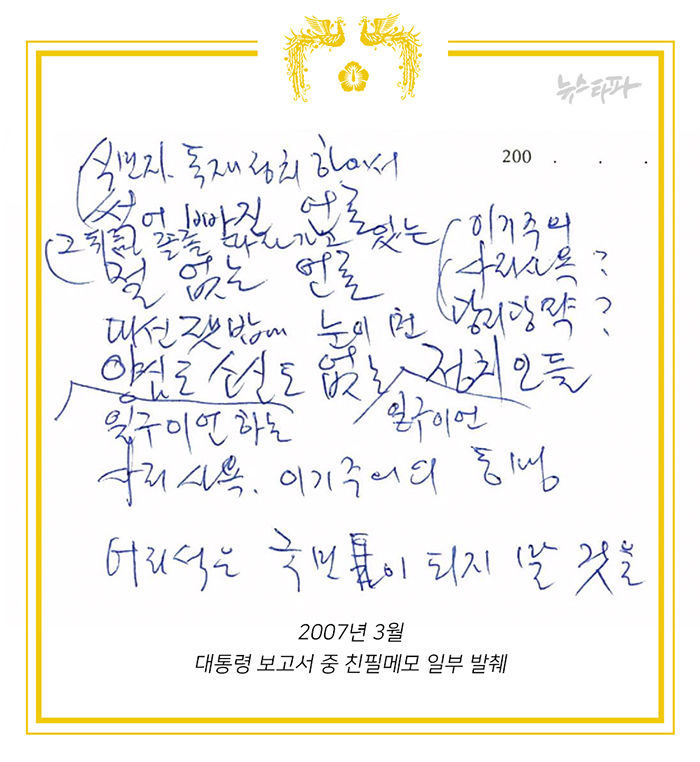 뉴스타파
200 . . .
식민지, 독재정치 하에서
썩어 빠진 언론
그 뒤를 졸졸 따라가고 있는
철 없는 언론
이기주의
사리사욕?
당리당략?
대선 잿밥에 눈이 먼
양심도 소신도 없는 정치인들
일구이언하는 일구이언
사리사욕. 이기주의의 동맹
어리석은 국민이 되지 말 것을
2007년 3월
대통령 보고서 중 친필메모 일부 발췌